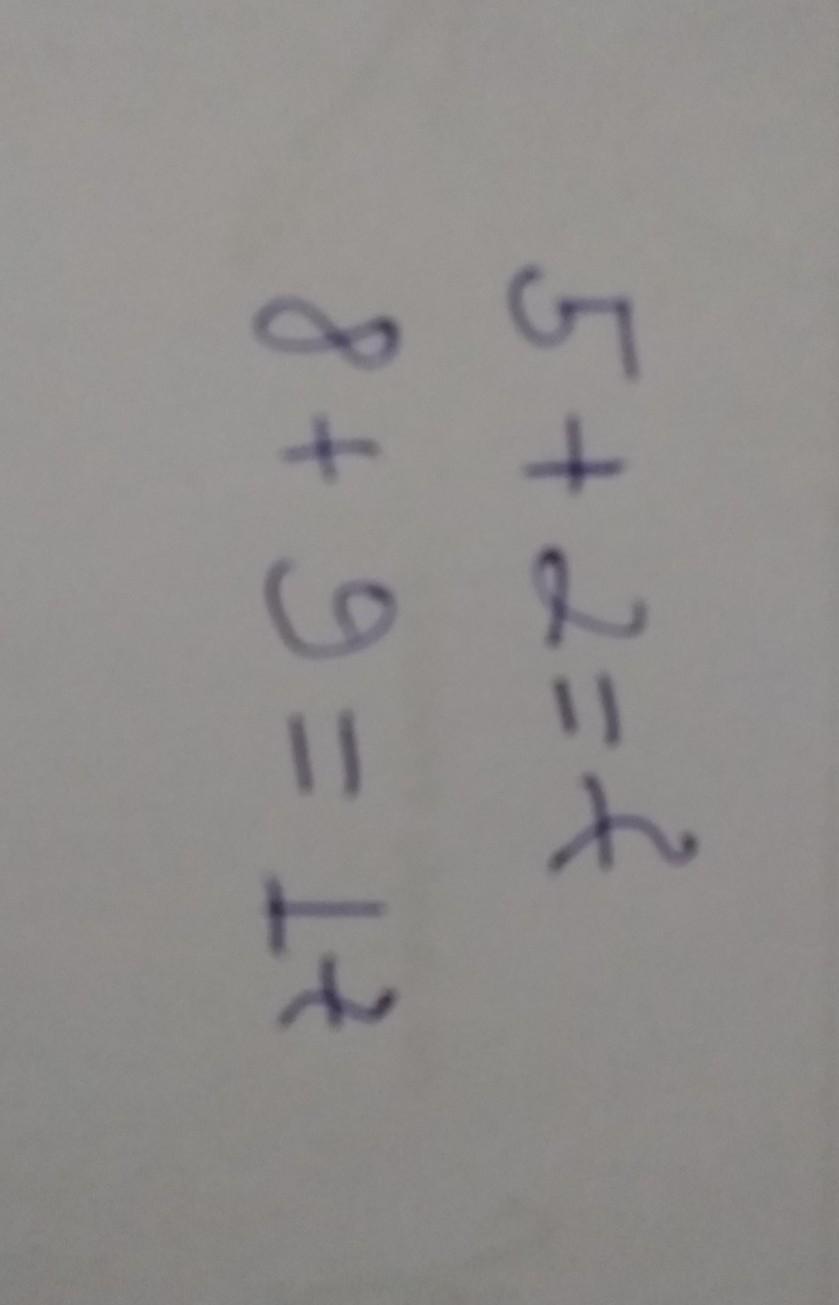 5+2=7
8+9=17